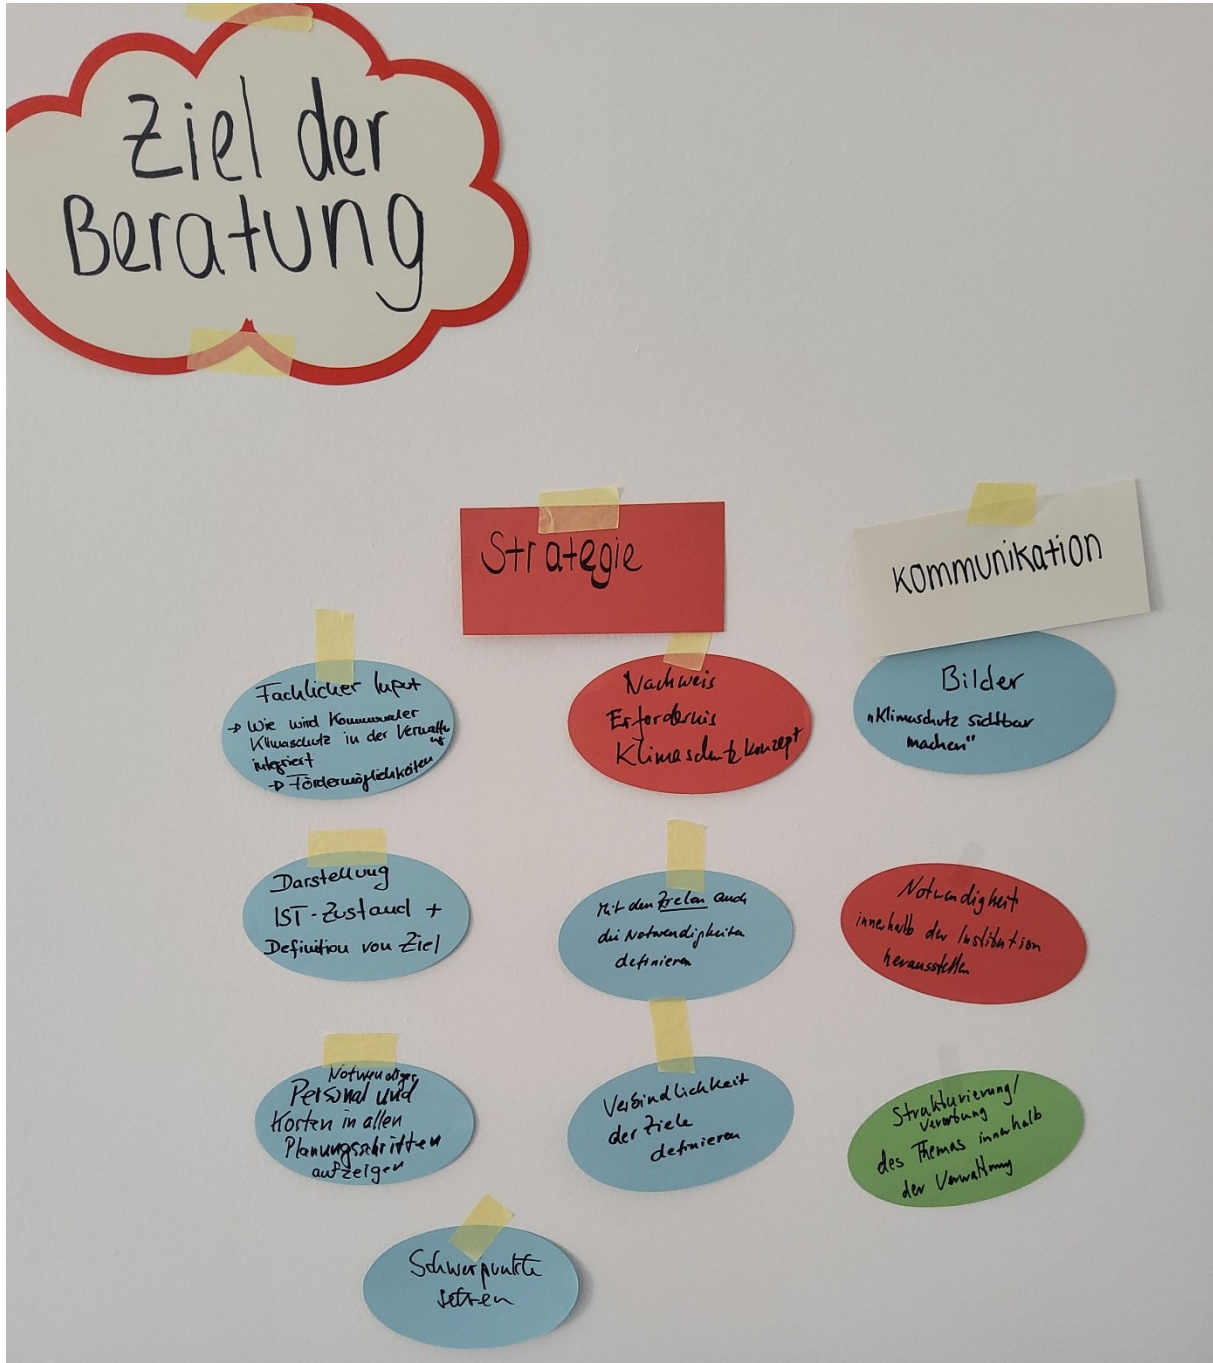 Ziel der
Beratung
Strategie
Kommunikation
Fachlicher Input
→ Wie wird Kommunaler
Klimaschutz in der Verwaltu
ng
integriert
→ Fördermöglichkeiten
Nachweis
Erfordernis
Klimaschutzkonzept
Bilder
"Klimaschutz sichtbar
machen"
Darstellung
IST-Zustand +
Definition von Ziel
Mit den Zielen auch
die Notwendigkeiten
definieren
Notwendigkeit
innerhalb der Institution
herausstellen
Notwendiger
Personal und
Kosten in allen
Planungsschritten
aufzeigen
Verbindlichkeit
der Ziele
definieren
Strukturierung/
Verortung
des Themas innerhalb
der Verwaltung
Schwerpunkte
setzen